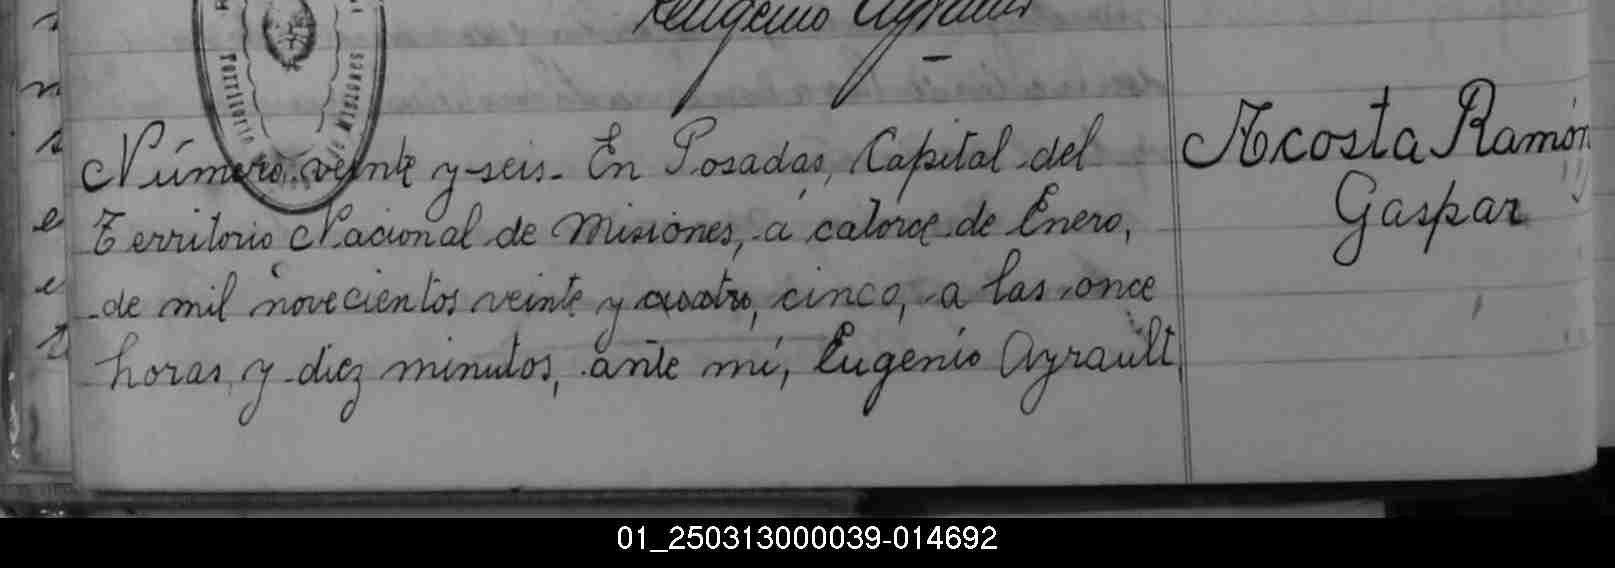 Eugenio Ayrault
Territorio de Misiones
Número veinte y seis. En Posadas, Capital del
Territorio Nacional de Misiones, á catorce de Enero,
de mil novecientos veinte y cuatro, cinco, a las once
horas y diez minutos, ante mí, Eugenio Ayrault
Acosta Ramón
Gaspar
01_250313000039-014692